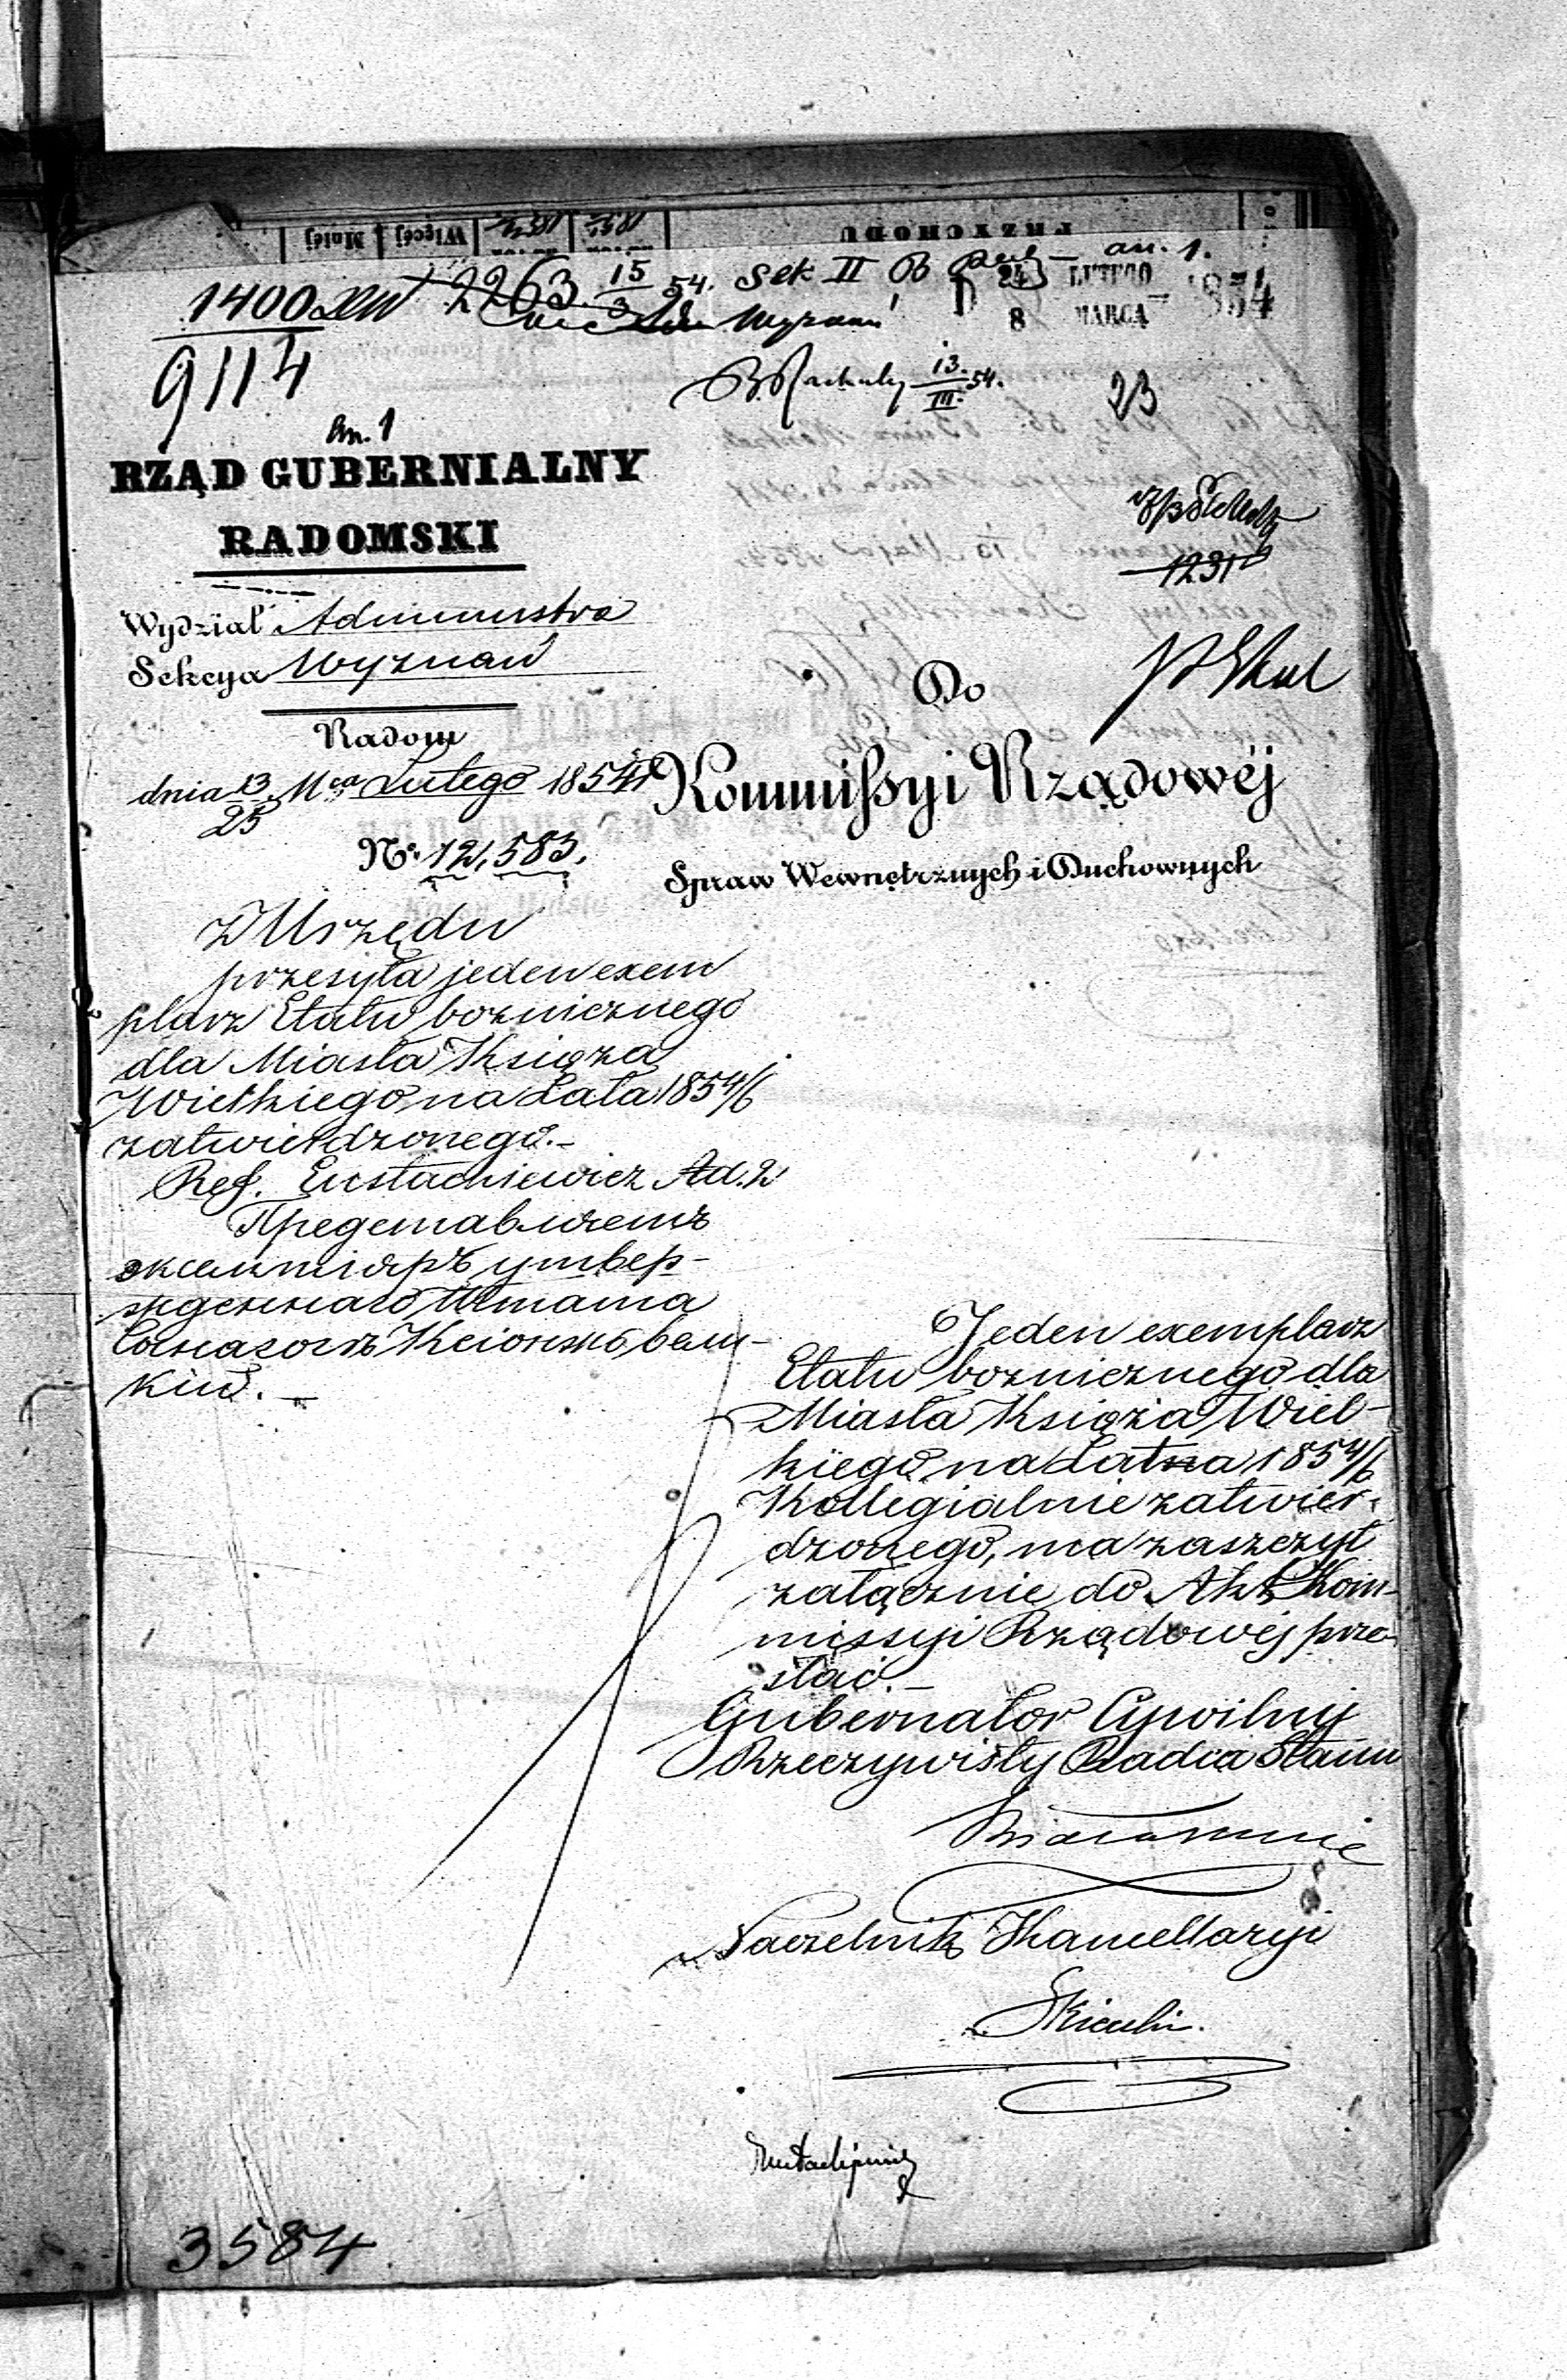 Mniéj Więcéj
PRZYCHODU
1400 2263 15/3 54. Sek II an. 1.
24 LUTEGO
8 MARCA 1854
9114
13/III 54.
23
an. 1
RZĄD GUBERNIALNY
RADOMSKI
1231
Wydział Administra
Sekcya Wyznań
Radom
dnia 13/25 Mca Lutego 1854 r
No. 12,583.
Do
Kommissyi Rządowéj
Spraw Wewnętrznych i Duchownych
Z Urzędu
przesyła jeden exem
plarz Etatu bożnicznego
dla Miasta Książa
Wielkiego na Lata 1854/6
zatwierdzonego.-
Ref. Eustachiewicz Ad. 2
Представляетъ
экземпляръ утвер-
жденнаго Штата
Божницы
кій. —
Jeden exemplarz
Etatu bożnicznego dla
Miasta Książa Wiel-
kiego, na Lata 1854/6
Kollegialnie zatwier-
dzonego, ma zaszczyt
załącznie do Akt Kom-
missyi Rządowéj prze-
słać.-
Gubernator Cywilny
Rzeczywisty Radca Stanu
Białoskurski
Naczelnik Kancellaryi
3584